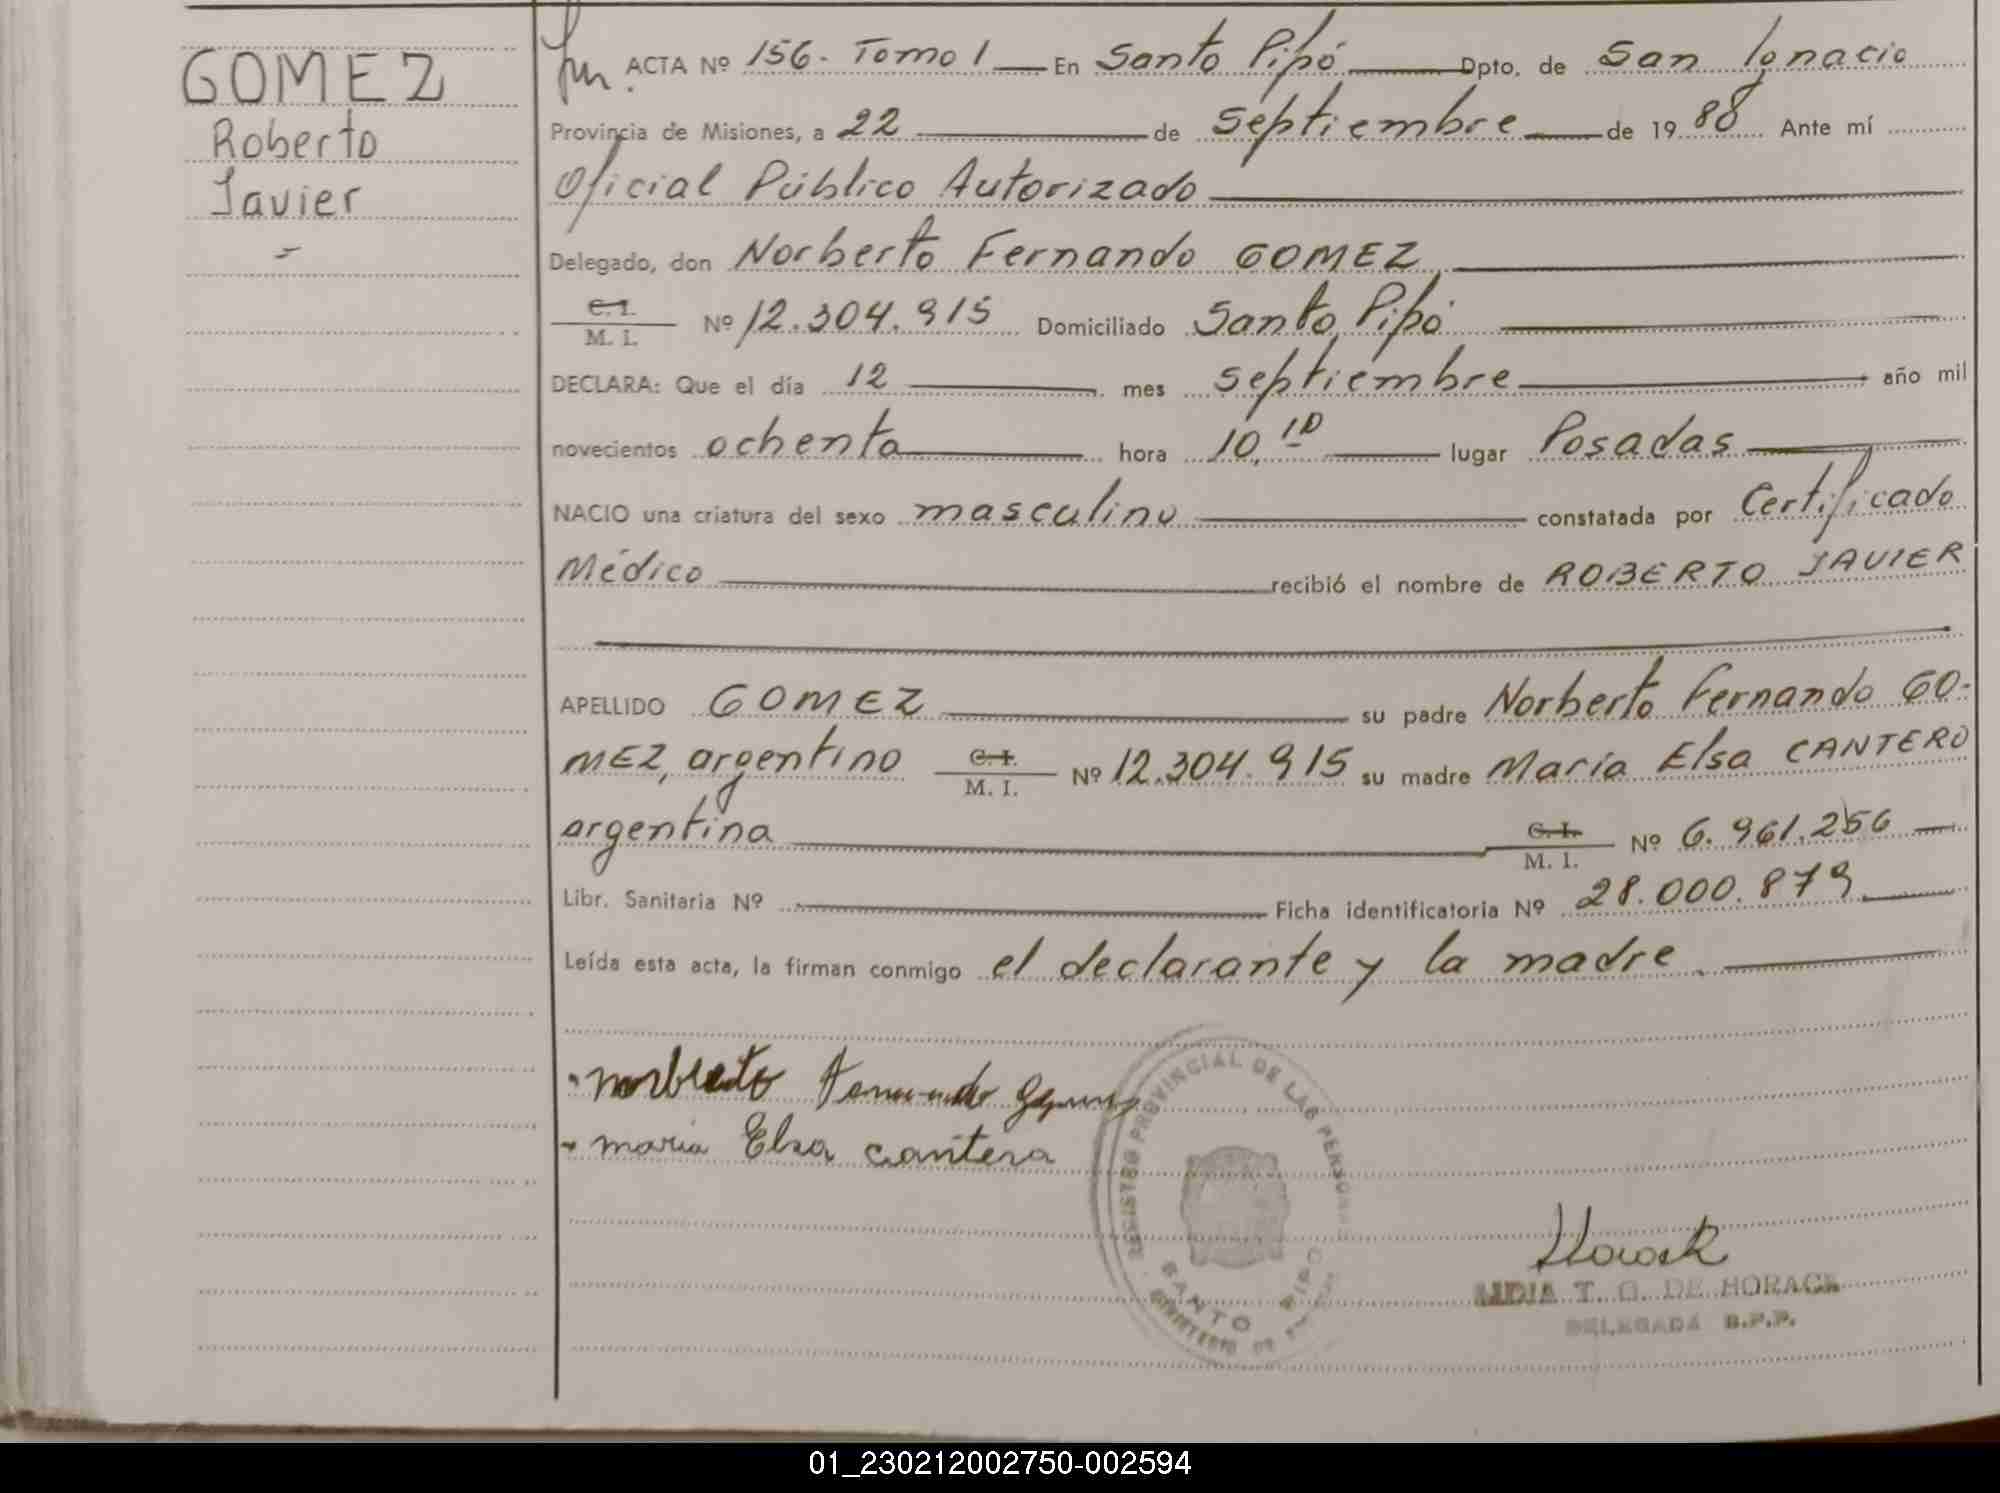 GOMEZ
Roberto
Javier
ACTA Nº 156. Tomo 1 En Santo Pipó Dpto. de San Ignacio
Provincia de Misiones, a 22 de Septiembre de 1980 Ante mí
Oficial Público Autorizado
Delegado, don Norberto Fernando GOMEZ
C. I.
M. I. Nº 12.304.915 Domiciliado Santo Pipó
DECLARA: Que el día 12 mes Septiembre año mil
novecientos ochenta hora 10,10 lugar Posadas
NACIO una criatura del sexo masculino constatada por Certificado
Médico recibió el nombre de ROBERTO JAVIER
APELLIDO GOMEZ su padre Norberto Fernando GO-
MEZ, argentino C. I. M. I. Nº 12.304.915 su madre María Elsa CANTERO
argentina C. I. M. I. Nº 6.961.256
Libr. Sanitaria Nº Ficha identificatoria Nº 28.000.879
Leída esta acta, la firman conmigo el declarante y la madre.
Norberto Fernando Gomez
Maria Elsa Cantero
REGISTRO PROVINCIAL DE LAS PERSONAS
SANTO PIPO
MINISTERIO DE
LIDIA T. G. DE HORACK
DELEGADA R.P.P.
01_230212002750-002594